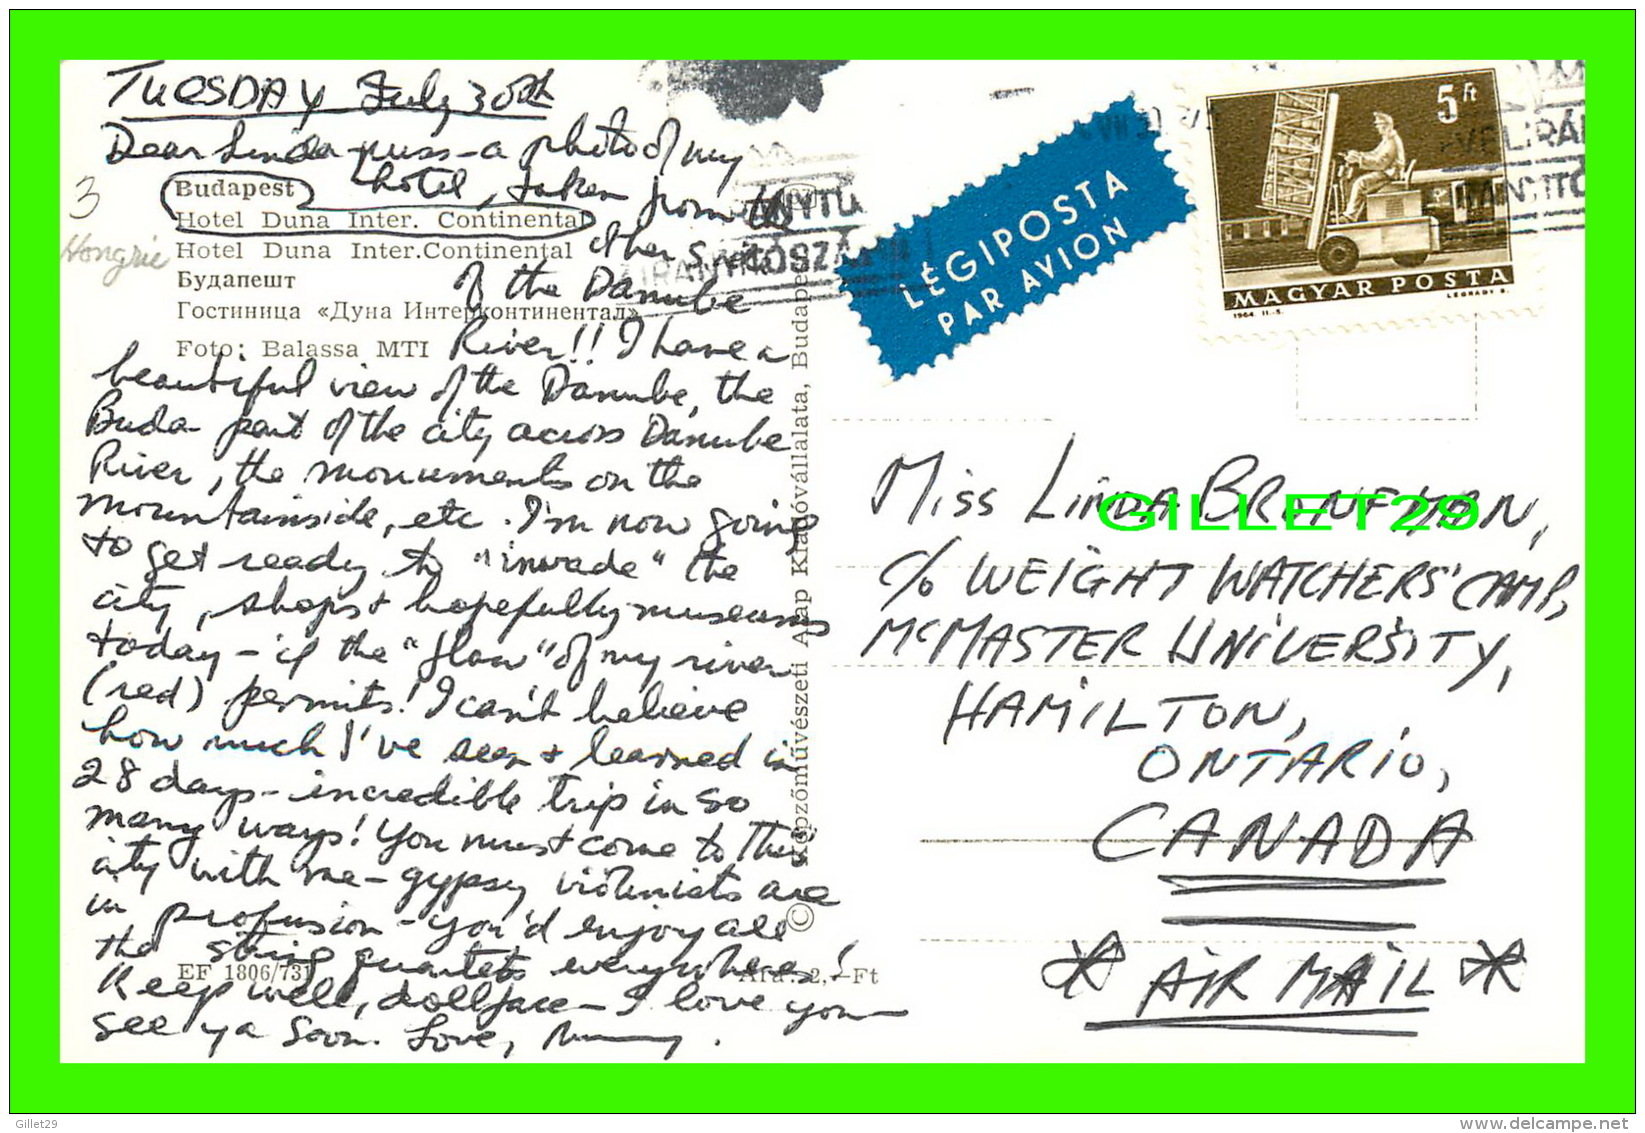 TUESDAY July 30th
Dear Linda-puss - a photo of my
hotel, taken from the
other side
of the Danube
River!! I have a
beautiful view of the Danube, the
Buda part of the city across Danube
River, the monuments on the
mountainside, etc. I'm now going
to get ready to "invade" the
city, shops + hopefully museums
today - if the "flow" of my river
(red) permits! I can't believe
how much I've seen + learned in
28 days - incredible trip in so
many ways! You must come to this
city with me - gypsy violinists are
in profusion - you'd enjoy all
the string quartets everywhere!
Keep well, dollface - I love you -
see ya soon. Love, Mummy.
3
Hongrie
Budapest
Hotel Duna Inter. Continental
Hotel Duna Inter.Continental
Будапешт
Гостиница «Дуна Интерконтинентал»
Foto: Balassa MTI
EF 1806/731
Ára: 2,-Ft
© Képzőművészeti Alap Kiadóvállalata, Budapest
LÉGIPOSTA
PAR AVION
5 Ft
MAGYAR POSTA
1964. II.-5.
LÉGRÁDY S.
MISS LINDA BRONFMAN,
c/o WEIGHT WATCHERS' CAMP,
McMASTER UNIVERSITY,
HAMILTON,
ONTARIO,
CANADA
* AIR MAIL *
GILLET29
Gillet29
www.delcampe.net